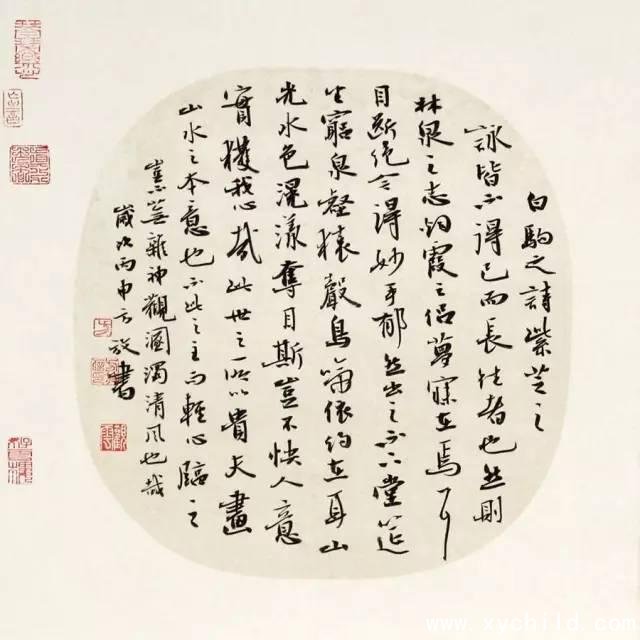 白駒之詩紫芝之
詠皆不得已而長往者也然則
林泉之志煙霞之侶夢寐在焉耳
目斷絕今得妙手郁然出之不下堂筵
坐窮泉壑猿聲鳥啼依約在耳山
光水色滉漾奪目斯豈不快人意
實獲我心哉此世之所以貴夫畫
山水之本意也不此之主而輕心臨之
豈不蕪雜神觀溷濁清風也哉
歲次丙申方放書
www.xycbild.com